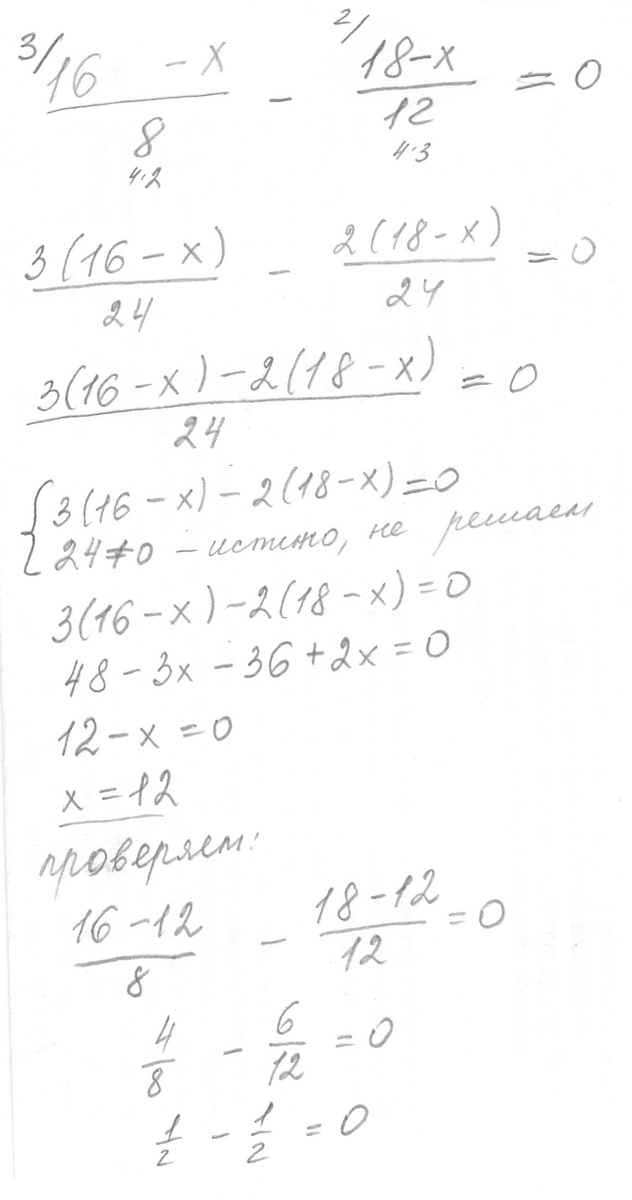 3/ 16 - x / 8 - 2/ 18-x / 12 = 0
4·2 4·3
3(16 - x) / 24 - 2(18 - x) / 24 = 0
3(16 - x) - 2(18 - x) / 24 = 0
{ 3(16 - x) - 2(18 - x) = 0
24 ≠ 0 - истино, не решаем
3(16 - x) - 2(18 - x) = 0
48 - 3x - 36 + 2x = 0
12 - x = 0
x = 12
проверяем:
16 - 12 / 8 - 18 - 12 / 12 = 0
4/8 - 6/12 = 0
1/2 - 1/2 = 0